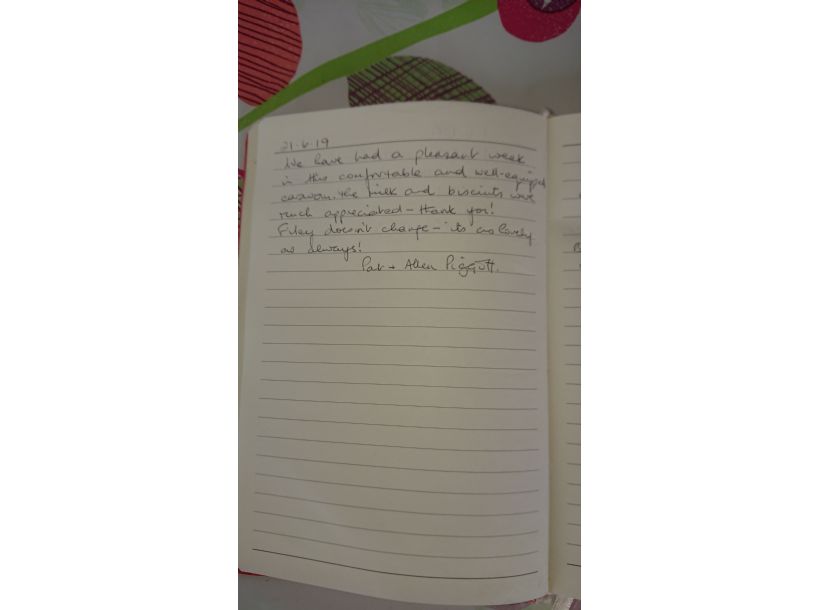 21.6.19
We have had a pleasant week
in this comfortable and well-equipped
caravan. The milk and biscuits were
much appreciated - thank you!
Filey doesn't change - it's as lovely
as always!
Pat + Allen Piggott.